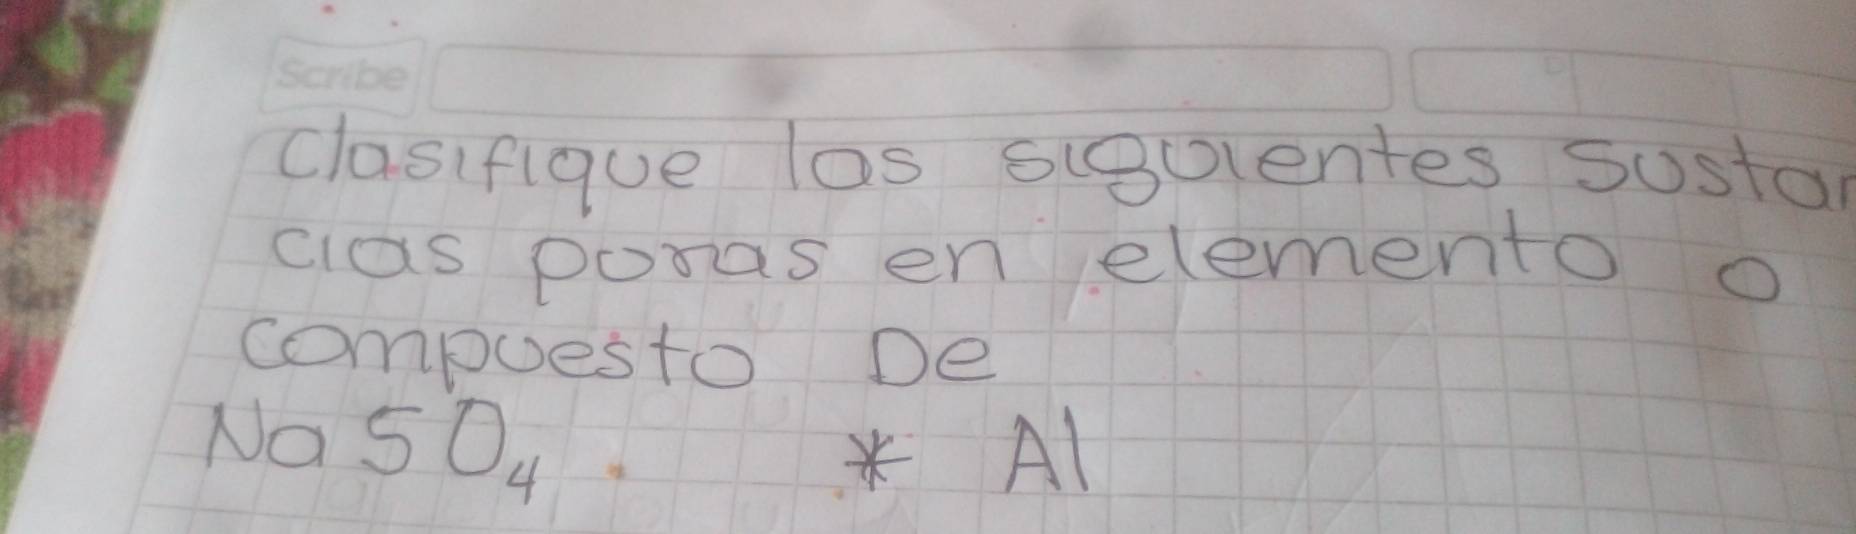 Scribe
clasifique las siguientes sustan
cias puras en elemento o
compuesto De
NaSO₄ * Al